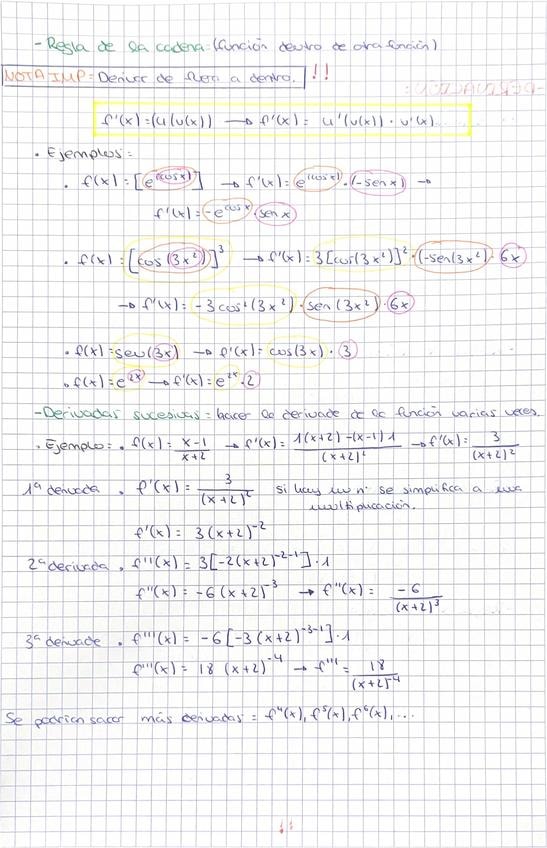 - Regla de la cadena: (función dentro de otra función)
NOTA IMP = Derivar de fuera a dentro. !!
f'(x) = (u(v(x)) → f'(x) = u'(v(x)) · v'(x)
· Ejemplos =
· f(x) = [e^(cosx)] → f'(x) = e^(cosx) · (-senx) →
f'(x) = -e^cosx · senx
· f(x) = [cos(3x²)]³ → f'(x) = 3[cos(3x²)]² · (-sen(3x²) · 6x
→ f'(x) = -3cos²(3x²) · sen(3x²) · 6x
· f(x) = sen(3x) → f'(x) = cos(3x) · 3
· f(x) = e^2x → f'(x) = e^2x · 2
- Derivadas sucesivas = hacer la derivada de la función varias veces.
· Ejemplo = · f(x) = x-1/x+2 → f'(x) = 1(x+2)-(x-1)1/(x+2)² → f'(x) = 3/(x+2)²
1ª derivada · f'(x) = 3/(x+2)² si hay un nº se simplifica a una
multiplicación.
f'(x) = 3(x+2)^-2
2ª derivada · f''(x) = 3[-2(x+2)^-2-1] · 1
f''(x) = -6(x+2)^-3 → f''(x) = -6/(x+2)³
3ª derivada · f'''(x) = -6[-3(x+2)^-3-1] · 1
f'''(x) = 18 (x+2)^-4 → f''' = 18/(x+2)^-4
Se podrían sacar más derivadas = f⁴(x), f⁵(x), f⁶(x), ...